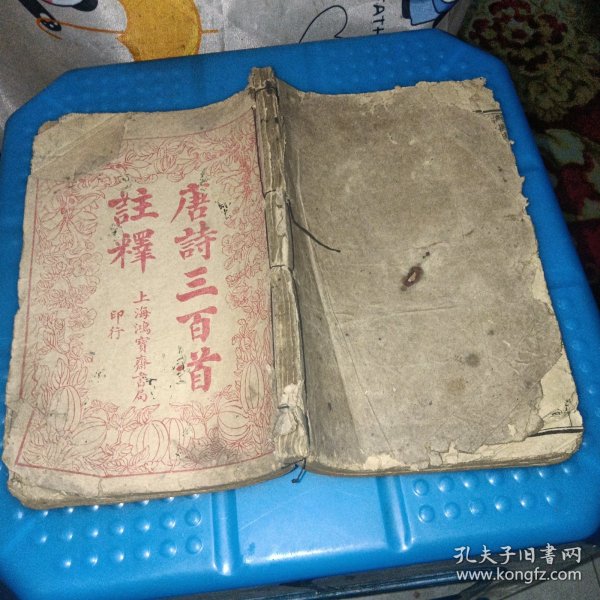 唐詩三百首
註釋
上海鴻寶齋書局
印行
孔夫子旧書网
www.kongfz.com